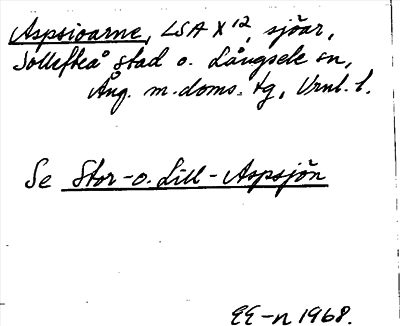 Aspsjöarne, LSA X 12, sjöar,
Sollefteå stad o. Långsele sn,
Ång. m. doms. tg, Vrnl. l.
Se Stor- o. Lill-Aspsjön
EE-n 1968.